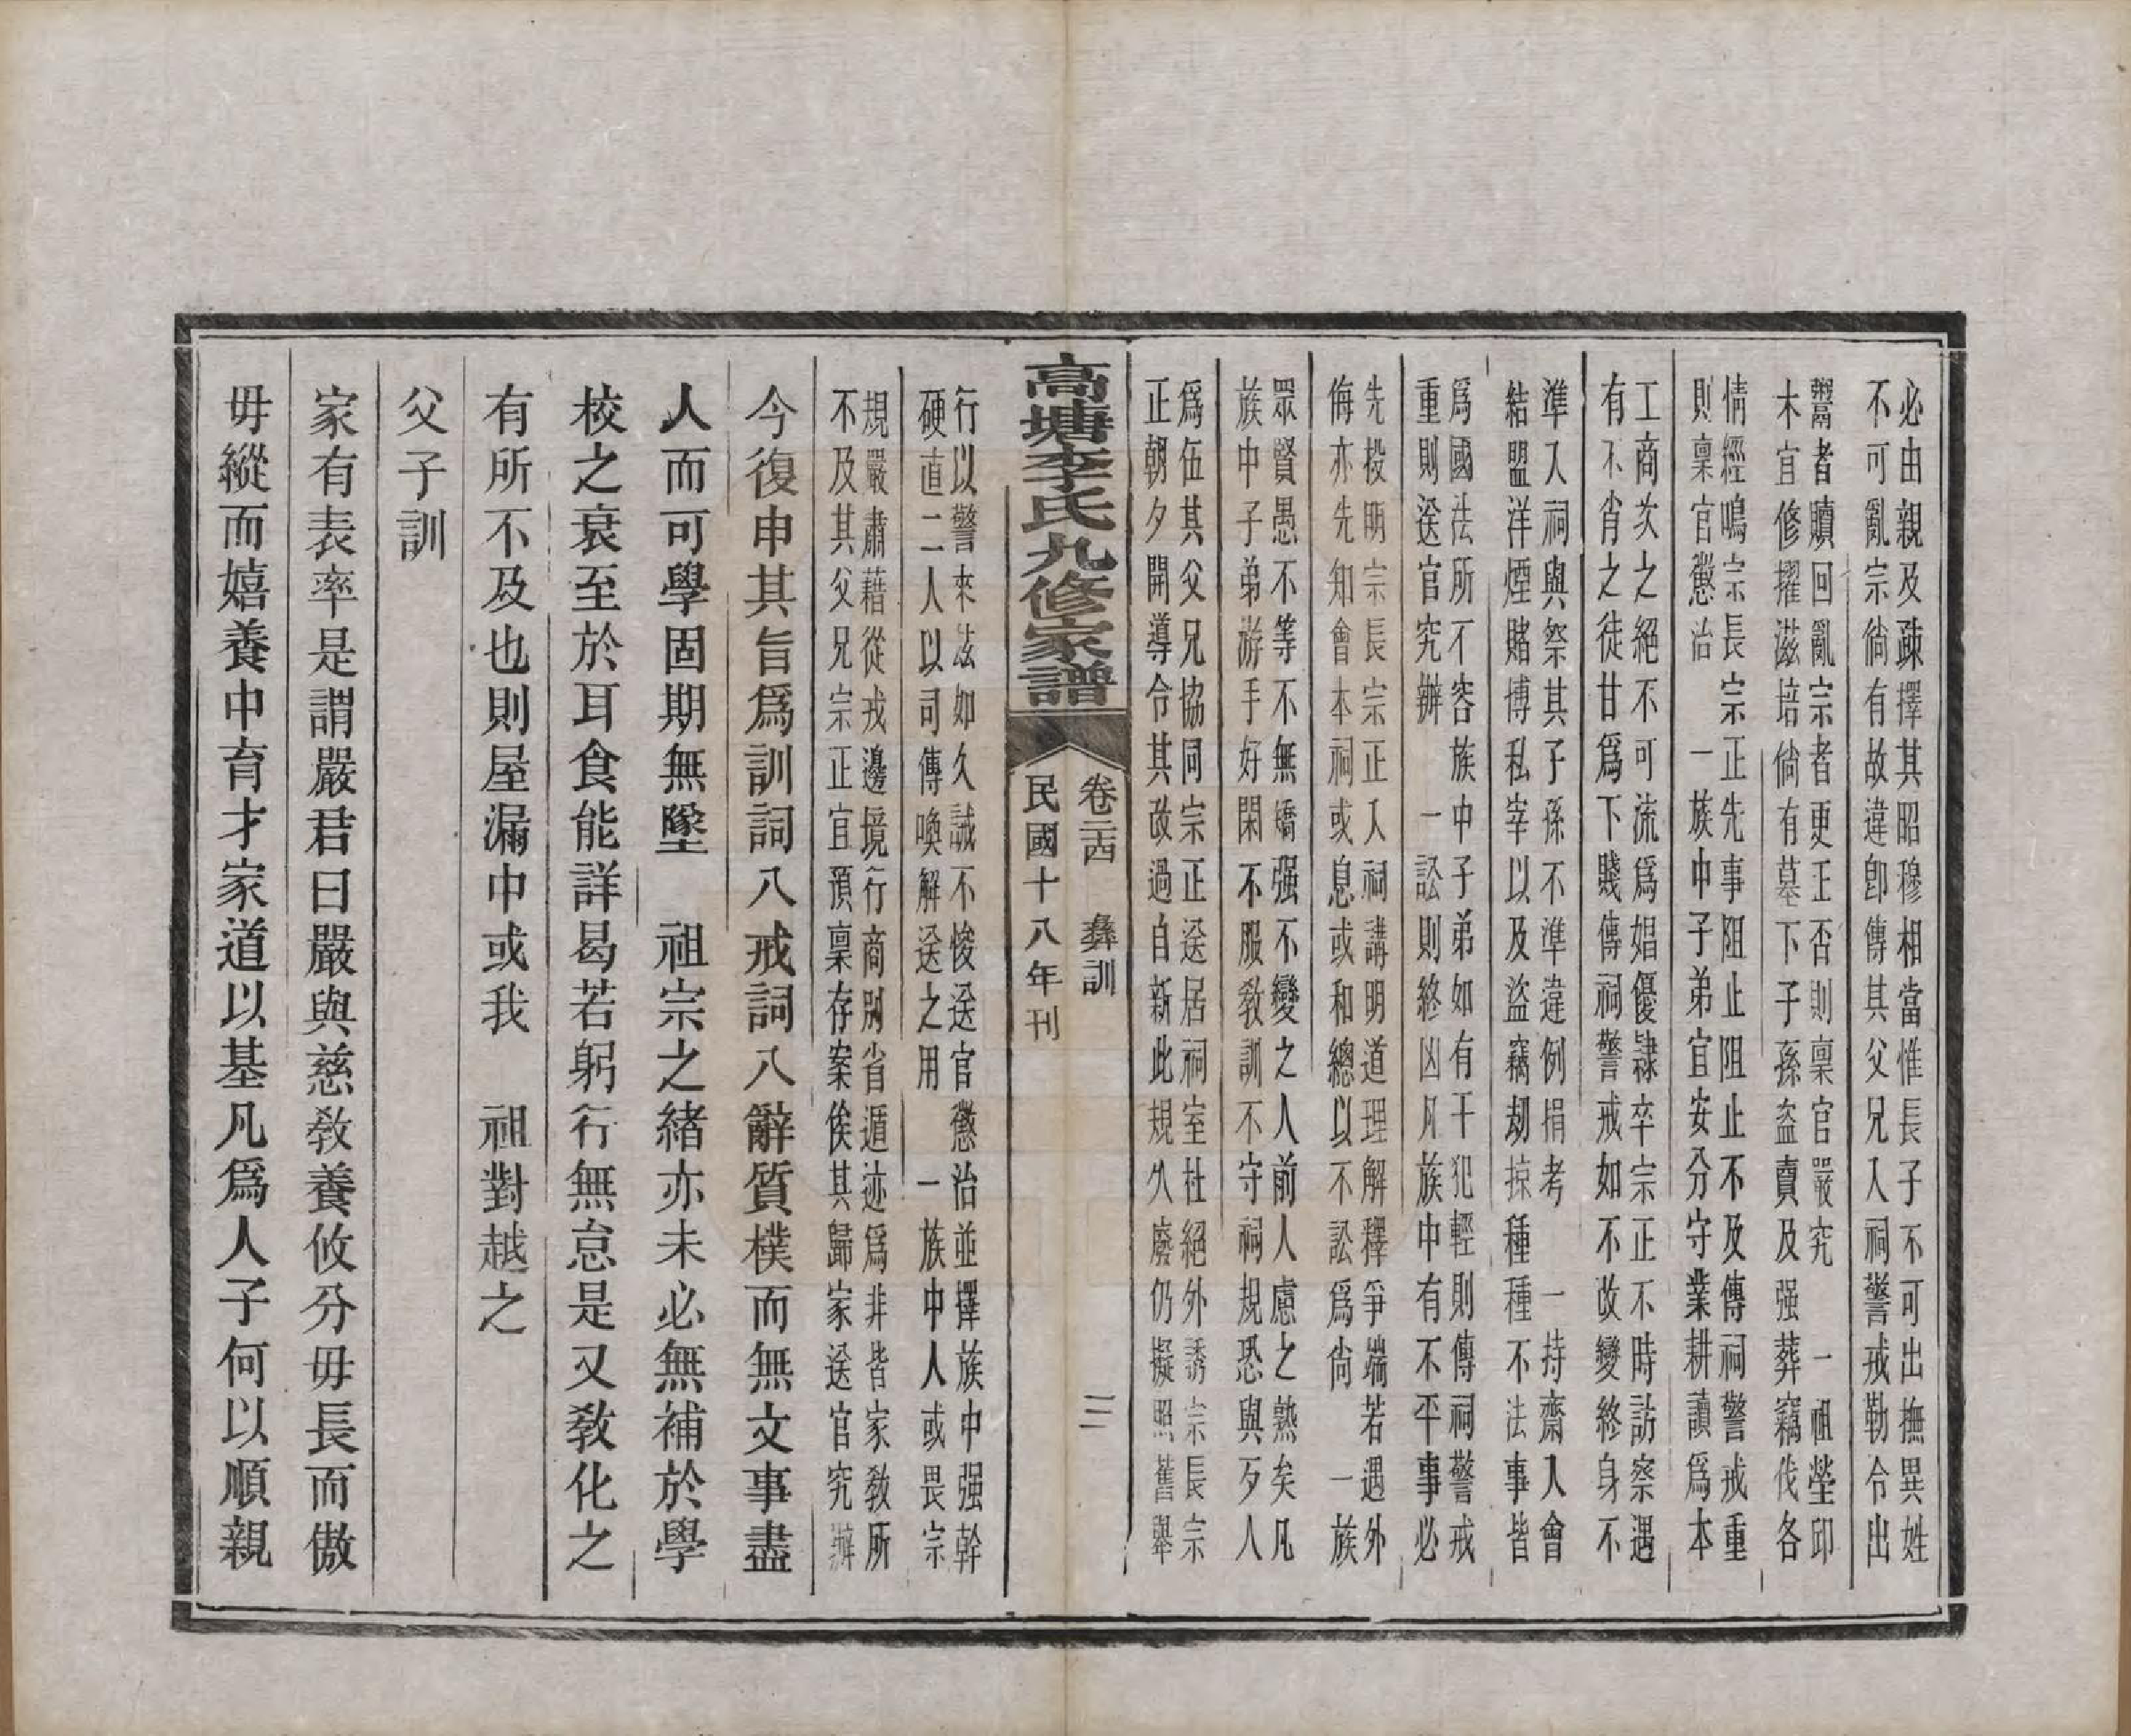 必由親及疎擇其昭穆相當惟長子不可出撫異姓
不可亂宗倘有故違卽傳其父兄入祠警戒勒令出
鬻者贖回亂宗者更正否則稟官嚴究　一祖塋邱
木宜修擢滋培倘有墓下子孫盜賣及强葬竊伐各
情經鳴宗長宗正先事阻止阻止不及傳祠警戒重
則稟官懲治　一族中子弟宜安分守業耕讀爲本
工商次之絕不可流爲娼優隷卒宗正不時訪察遇
有不肖之徒甘爲下賤傳祠警戒如不改變終身不
準入祠與祭其子孫不準違例捐考　一持齋入會
結盟洋煙賭博私宰以及盜竊刼掠種種不法事皆
爲國法所不容族中子弟如有干犯輕則傳祠警戒
重則送官究辦　一訟則終凶凡族中有不平事必
先投明宗長宗正入祠講明道理解釋爭端若遇外
侮亦先知會本祠或息或和總以不訟爲尙　一族
眾賢愚不等不無矯强不變之人前人慮之熟矣凡
族中子弟游手好閑不服敎訓不守祠規恐與歹人
爲伍其父兄協同宗正送居祠室杜絕外誘宗長宗
正朝夕開導令其改過自新此規久廢仍擬照舊舉
高塘李氏九修家譜
卷二十四　彝訓
三
民國十八年刊
行以警來玆如久誡不悛送官懲治並擇族中强幹
硬直二人以司傳喚解送之用　一族中人或畏宗
規嚴肅藉從戎邊境行商別省遁迹爲非皆家敎所
不及其父兄宗正宜預稟存案俟其歸家送官究辦
今復申其旨爲訓詞八戒詞八辭質樸而無文事盡
人而可學固期無墜　祖宗之緒亦未必無補於學
校之衰至於耳食能詳曷若躬行無怠是又敎化之
有所不及也則屋漏中或我　祖對越之
父子訓
家有表率是謂嚴君曰嚴與慈敎養攸分毋長而傲
毋縱而嬉養中育才家道以基凡爲人子何以順親